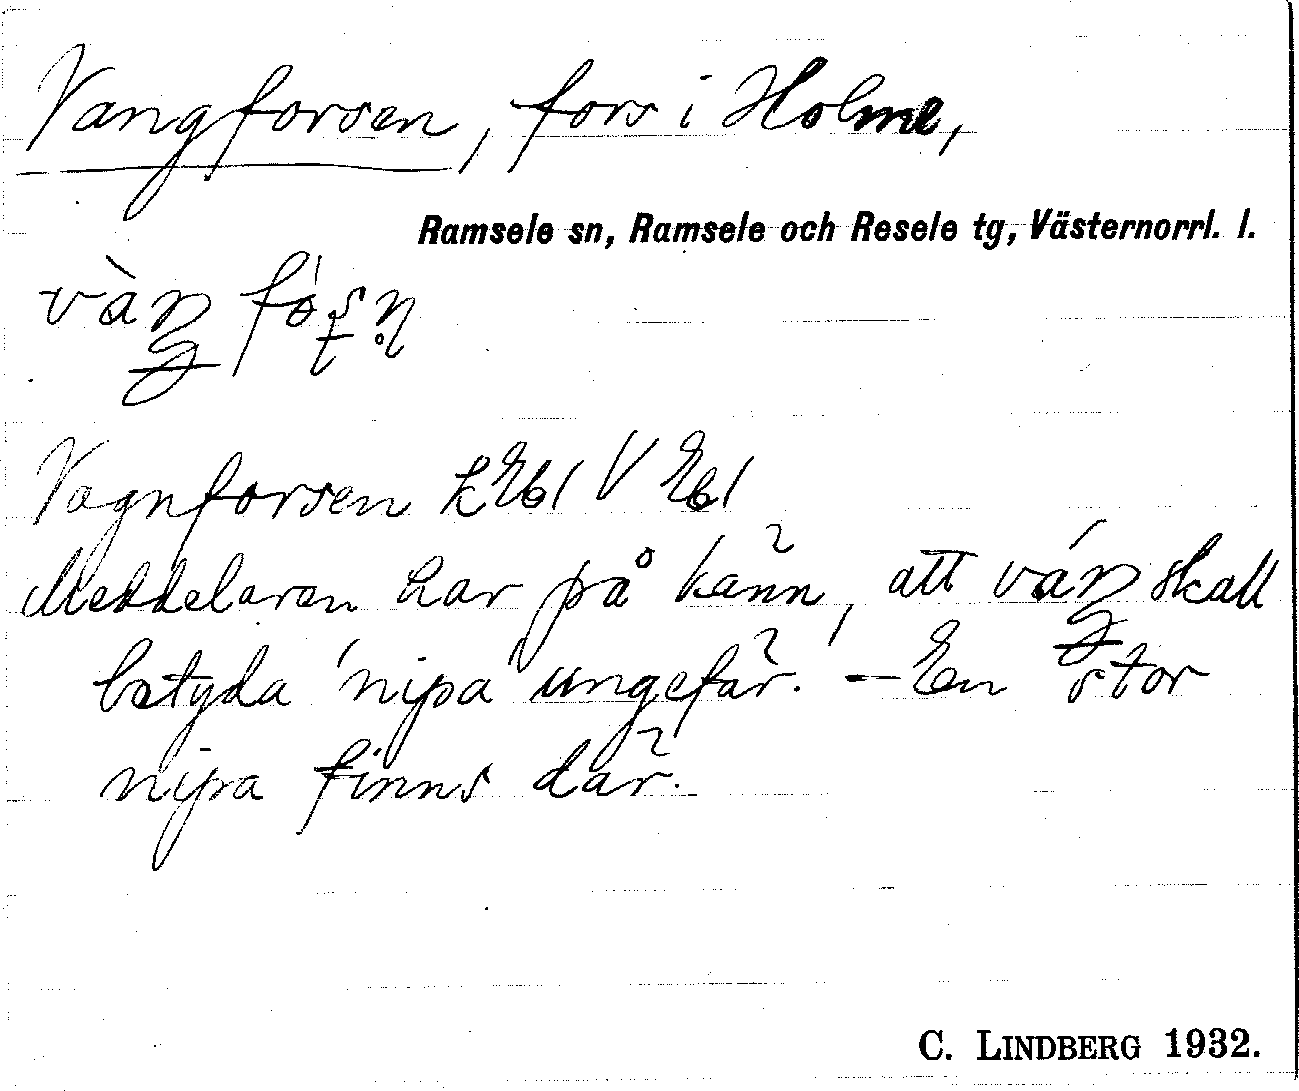 Vangforsen, fors i Holme,
Ramsele sn, Ramsele och Resele tg, Västernorrl. l.
Vagnforsen kEbl V Ebl
Meddelaren har på känn, att váŋ skall
betyda 'nipa' ungefär. – En stor
nipa finns där.
C. LINDBERG 1932.